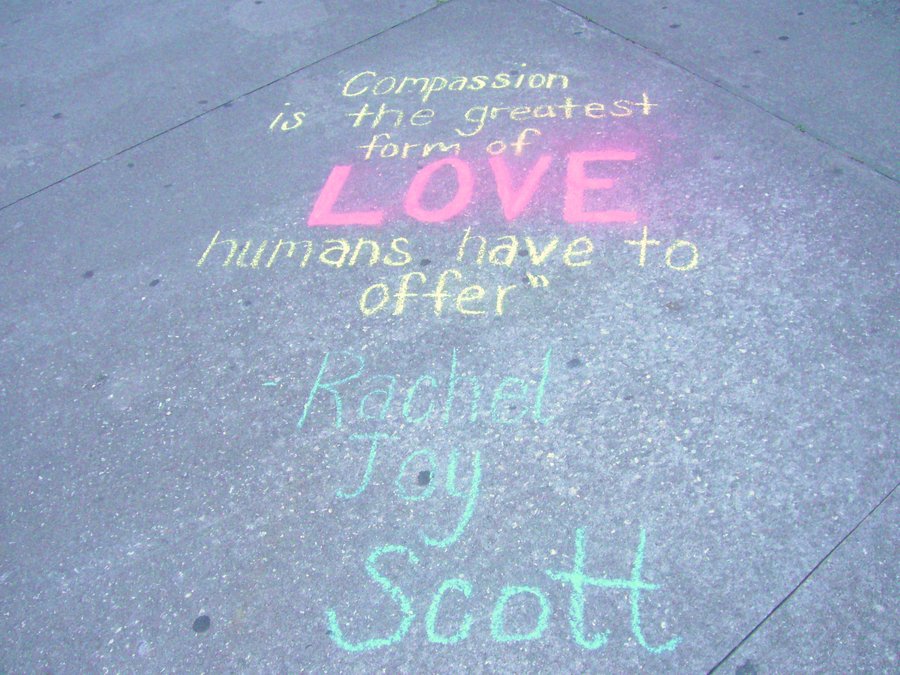 Compassion
is the greatest
form of
LOVE
humans have to
offer"
- Rachel
Joy
Scott